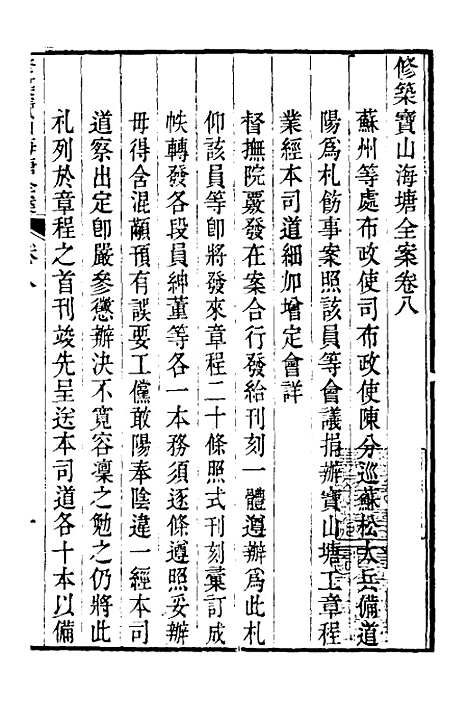 修築寶山海塘全案卷八
蘇州等處布政使司布政使陳分巡蘇松太兵備道
陽為札飭事案照該員等會議捐辦寶山塘工章程
業經本司道細加增定會詳
督撫院覈發在案合行發給刊刻一體遵辦為此札
仰該員等即將發來章程二十條照式刊刻彙訂成
帙轉發各段員紳董等各一本務須逐條遵照妥辦
毋得含混顢頇有誤要工儻敢陽奉陰違一經本司
道察出定即嚴參懲辦決不寬容凜之勉之仍將此
札列於章程之首刊竣先呈送本司道各十本以備
卷八
一